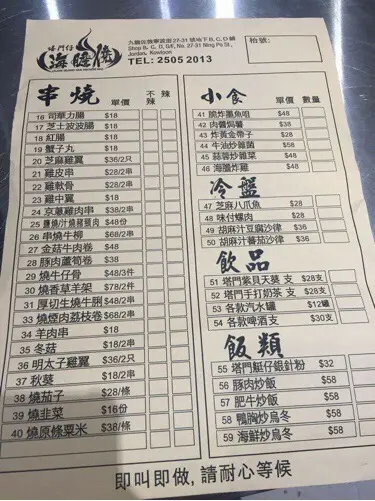 塔門仔
海膽燒
九龍佐敦寧波街27-31號地下B, C, D舖
Shop B, C, D, G/F, No. 27-31 Ning Po St.,
Jordan, Kowloon
TEL: 2505 2013
枱號:
串燒 單價 不辣 辣
16 司華力腸 $18
17 芝士波波腸 $18
18 紅腸 $18
19 蟹子丸 $18
20 芝麻雞翼 $36/2只
21 雞皮串 $28/2串
22 雞軟骨 $28/2串
23 雞中翼 $18
24 京蔥雞肉串 $38/2串
25 鹽燒/汁燒豬頸肉 $48/份
26 串燒牛柳 $68/2串
27 金菇牛肉卷 $48
28 豚肉蘆筍卷 $38
29 燒牛仔骨 $48/3件
30 燒香草羊架 $78/2件
31 厚切生燒牛脷 $48/2串
33 燒煙肉荔枝卷 $68/2串
34 羊肉串 $18
35 冬菇 $18/2串
36 明太子雞翼 $36/2只
37 秋葵 $18/2串
38 燒茄子 $28/條
39 燒韭菜 $16份
40 燒原條粟米 $38/條
小食 單價 數量
41 脆炸墨魚咀 $48
42 肉醬焗薯 $38
43 炸黃金帶子 $28
44 牛油炒雜菌 $58
45 蒜蓉炒雜菜 $48
46 海膽炸雞 $48
冷盤
47 芝麻八爪魚 $28
48 味付螺肉 $28
49 胡麻汁豆腐沙律 $36
50 胡麻汁蕃茄沙律 $36
飲品
51 塔門紫貝天葵 支 $28支
52 塔門手打奶茶 支 $28支
53 各款汽水罐 $12罐
54 各款啤酒支 $30支
飯類
55 塔門艇仔銀針粉 $32
56 豚肉炒飯 $58
57 肥牛炒飯 $58
58 鴨胸炒烏冬 $58
59 海鮮炒烏冬 $58
即叫即做, 請耐心等候